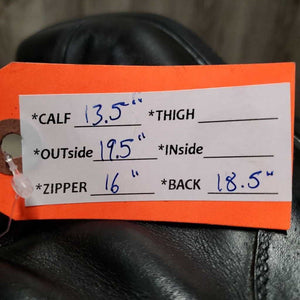 *CALF 13.5" *THIGH
*OUTside 19.5" *INside
*ZIPPER 16" *BACK 18.5"